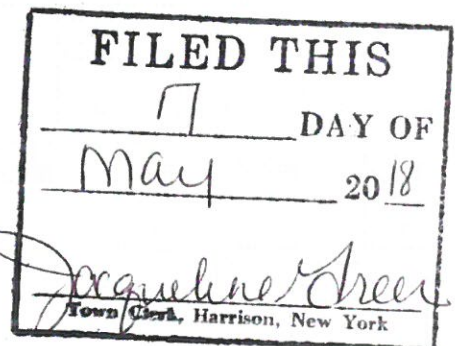 FILED THIS
7 DAY OF
May 2018
Jacqueline Greer
Town Clerk, Harrison, New York